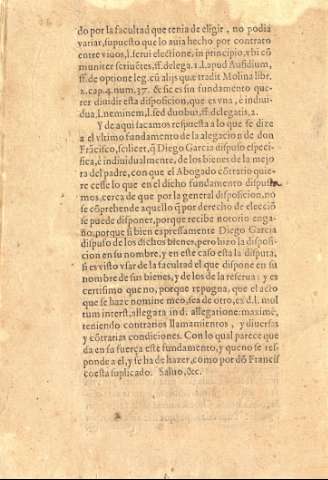 do por la facultad que tenia de elegir, no podia
variar, supuesto que lo auia hecho por contrato
entre viuos, l. serui electione, in principio, vbi cõ
muniter scriuẽtes, ff. de lega. 1. l. apud Aufidium,
ff. de optione leg. cũ alijs quæ tradit Molina libr.
2. cap. 4. num. 37. & sic es sin fundamento que-
rer diuidir esta disposicion, que es vna, è indiui-
dua, l. neminem, l. sed duobus, ff. de legatis, 2.
Y de aqui sacamos respuesta a lo que se dize
a el vltimo fundamento de la alegacion de don
Frãcisco, scilicet, q̃ Diego Garcia dispuso especi-
fica, è indiuidualmente, de los bienes de la mejo
ra del padre, con que el Abogado cõtrario quie-
re cesse lo que en el dicho fundamento dispusi-
mos, cerca de que por la general disposicion, no
se cõprehende aquello q̃ por derecho de elecciõ
se puede disponer, porque recibe notorio enga-
ño, porque si bien expressamente Diego Garcia
dispuso de los dichos bienes, pero hizo la disposi-
cion en su nombre, y en este caso esta la disputa,
si es visto vsar de la facultad el que dispone en su
nombre de sus bienes, y de los de la reserua: y es
certissimo que no, porque repugna, que el acto
que se haze nomine meo, sea de otro, ex d. l. mol
tum interst, allegata in d. allegatione: maximè,
teniendo contrarios llamamientos, y diuersas
y cõtrarias condiciones. Con lo qual parece que
da en su fuerça este fundamento, y que no se res-
ponde a el, y se ha de hazer, como por dõ Francis
co esta suplicado. Saluo, &c.